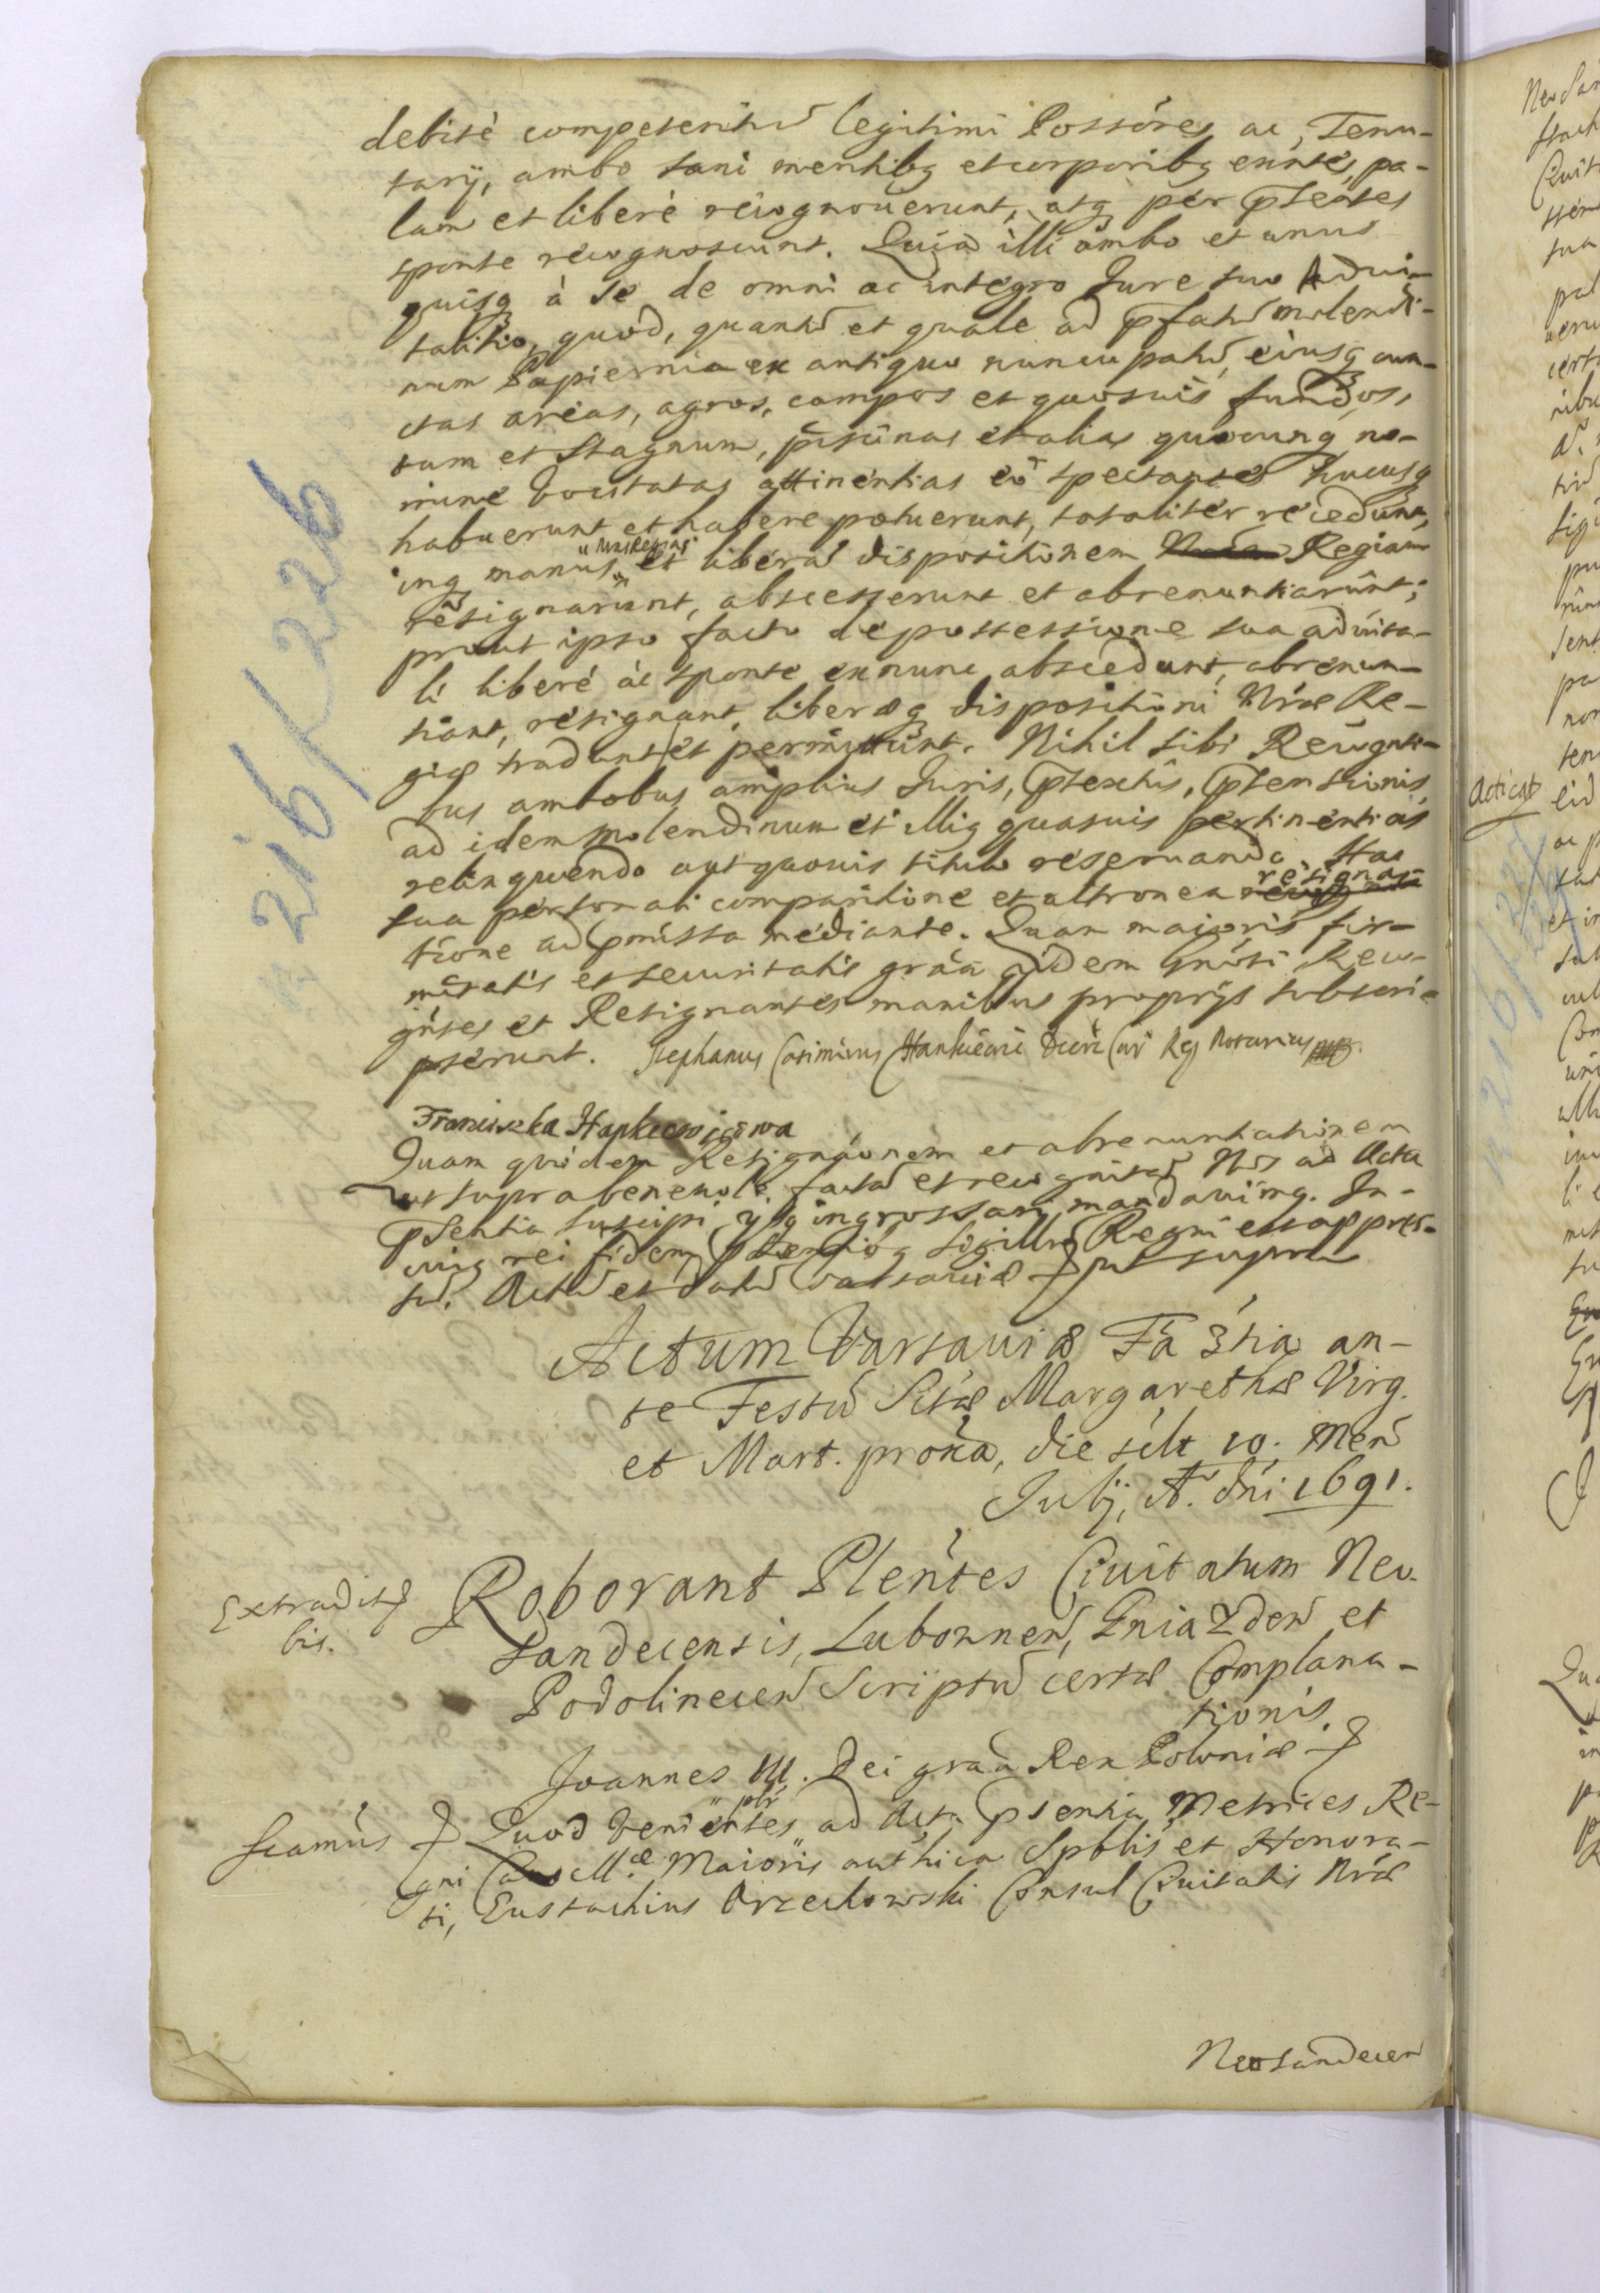 debitè competentiũ legitimi Possóres ac Tenu-
tarÿ, ambo sani mentibꝫ et corporibꝫ exñtes, pa-
lam et liberè recognoverunt, atqꝫ per p̃sentes
sponte recognoscunt. Quia illi ambo et unus
quisqꝫ à se de omni ac integro Jure suo Advi-
talitio, quod, quantũ et quale ad p̃fatũ molendi-
num Papiernia ex antiquo nuncupatũ, eiusqꝫ cun-
ctas areas, agros, campos et quosvis fundos,
tum et stagnum, piscinas et alias quocunqꝫ no-
mine vocitatas attinentias eò spectantes hucusqꝫ
habuerunt et habere potuerunt, totaliter recedunt,
inqꝫ manus et liberã dispositionem Regiam
resignarunt, abscesserunt et abrenuntiarunt;
prout ipso facto de possessione sua advita-
li liberè ac sponte exnunc abscedunt, abrenun-
tiant, resignant, liberæqꝫ dispositioni Nræ Re-
giæ tradunt et permittunt. Nihil sibi Recogñti-
bus ambobus amplius Juris, p̃textûs, p̃tensionis,
ad idem Molendinum et illiꝫ quasvis pertinentias
relinquendo aut quovis titulo reservando. Hac
sua personali comparitione et ultronea resigna-
tione ad p̃missa mediante. Quam maioris fir-
mitatis et securitatis grãa ijdem Gñosi Reco-
gñtes et Resignantes manibus proprÿs subscri-
pserunt. Stephanus Casimirus Hankiewic Decr̃ Cur̃ Reg Notarius mp.
Franciszka Hankiewiczowa
Quam quidem Resignãonem et abrenuntiationem
ut supra benevolè factã et recognitã Nos ad Acta
p̃sentia suscipi, ijsqꝫ ingrossari mandavimꝫ. In
cuiꝫ rei fidem p̃sentibꝫ Sigillũ Regni est appres-
sũ. Actũ et datũ Varsaviæ ut supra
Actum Varsaviæ Fã 3tia an-
te Festũ Sctæ Margarethæ Virg.
et Mart. proxã, die scilt 10. Men̄
Julij, A. Dñi 1691.
Extradit
bis.
Roborant Plentes Civitatum Neo-
Sandecensis, Lubovnen̄, Gniazden̄ et
Podolinecen̄ Scriptũ certæ Complana-
tionis.
Joannes III. Dei grãa Rex Poloniæ
Quod venientes pltr ad Acta p̃sentia Metrices Re-
gni Cancllæ Maioris authica Spbłis et Honora-
ti, Eustachius Orzechowski Consul Civitatis Nræ
Neosandecen̄
216/226
Acticat